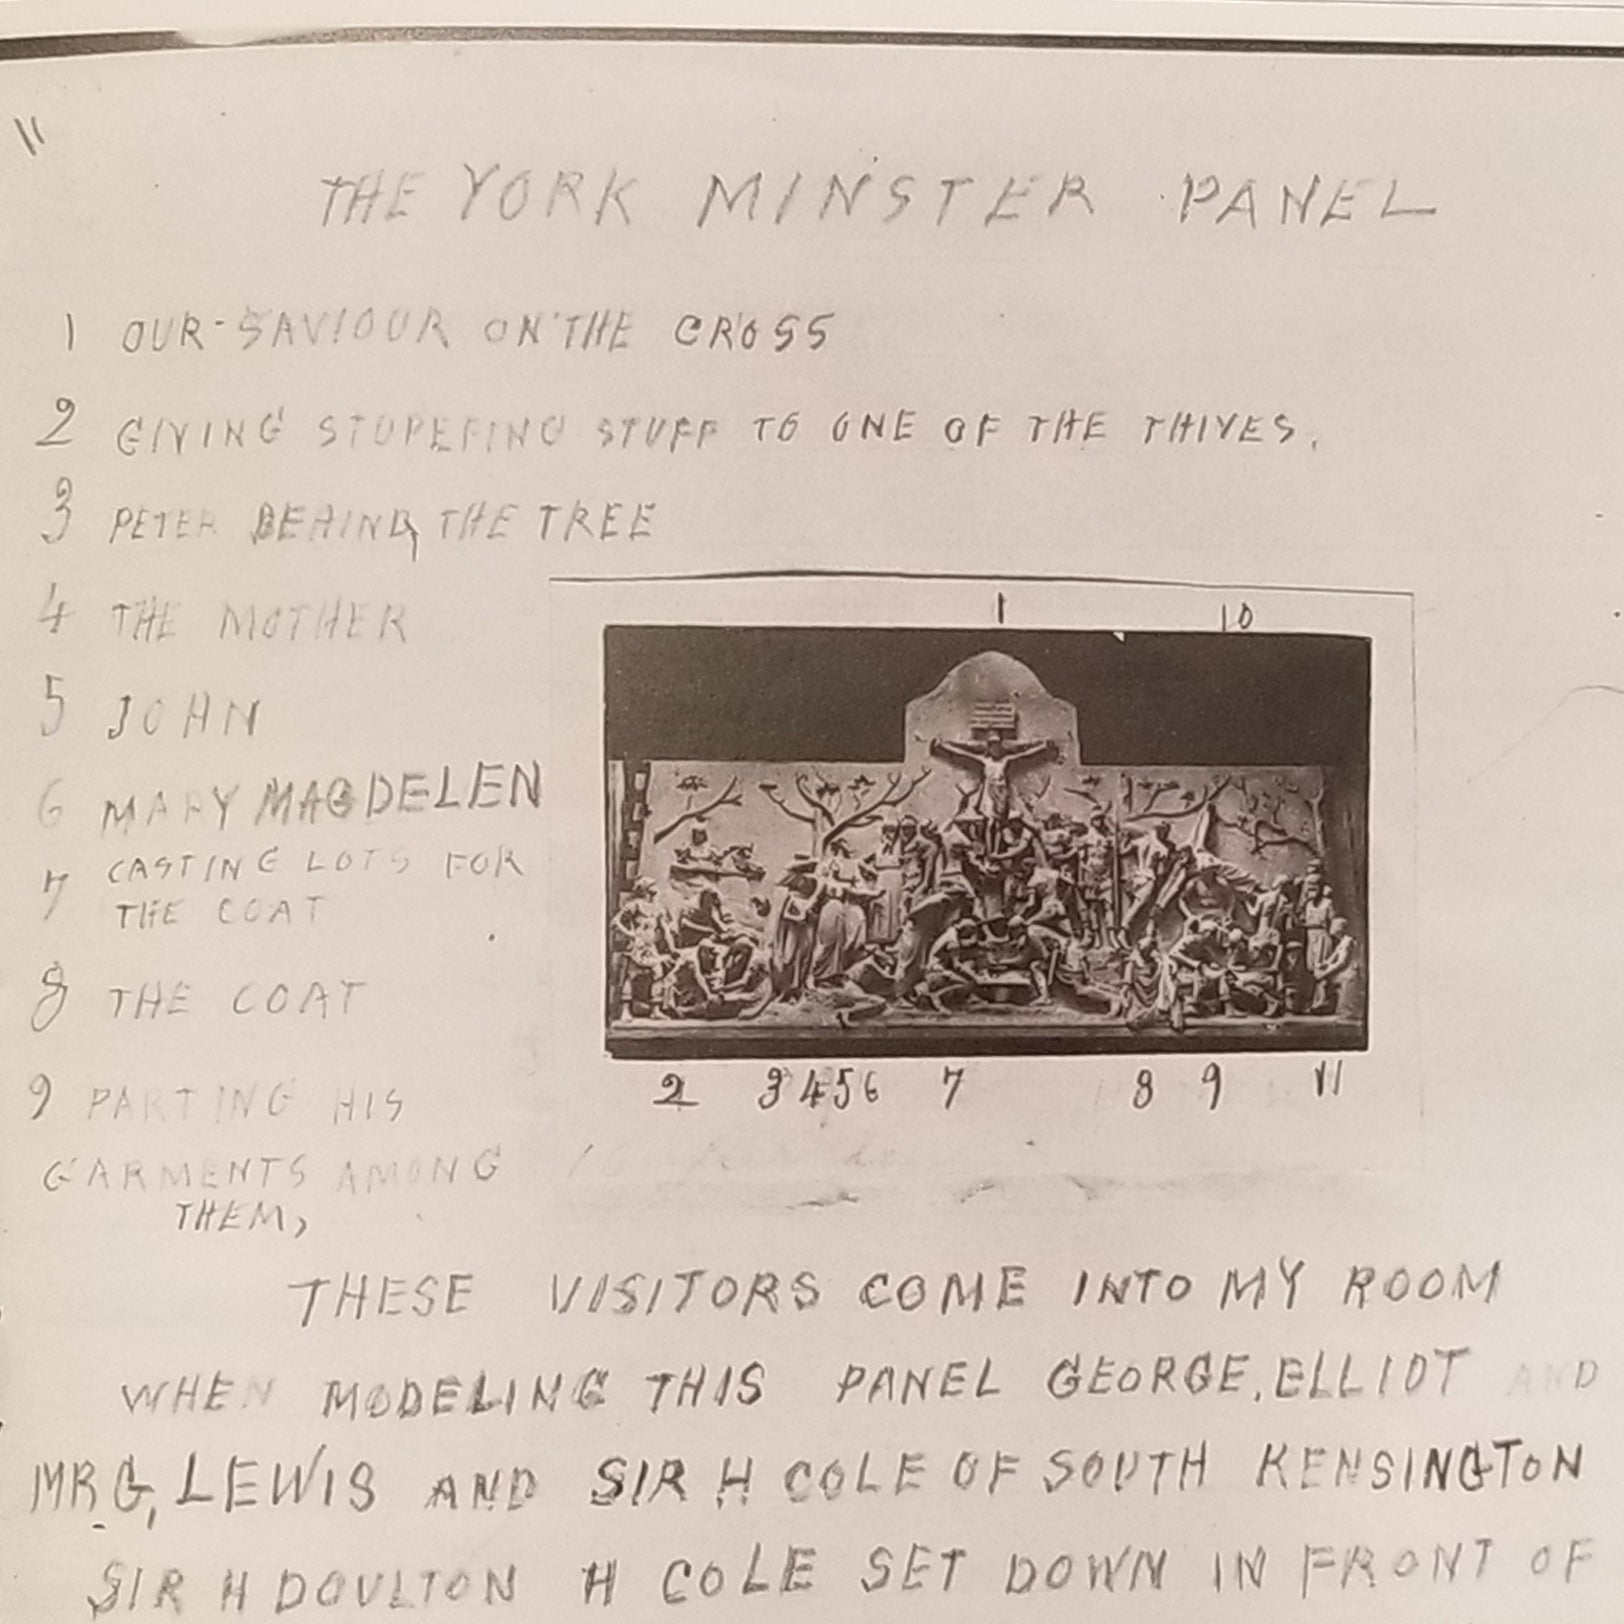 11
THE YORK MINSTER PANEL
1 OUR-SAVIOUR ON THE CROSS
2 GIVING STUPEFING STUFF TO ONE OF THE THIVES.
3 PETER BEHIND THE TREE
4 THE MOTHER
5 JOHN
6 MARY MAGDELEN
7 CASTING LOTS FOR
THE COAT
8 THE COAT
9 PARTING HIS
GARMENTS AMONG
THEM,
1 10
2 3 4 5 6 7 8 9 11
THESE VISITORS COME INTO MY ROOM
WHEN MODELING THIS PANEL GEORGE, ELLIOT AND
MR G, LEWIS AND SIR H COLE OF SOUTH KENSINGTON
SIR H DOULTON H COLE SET DOWN IN FRONT OF